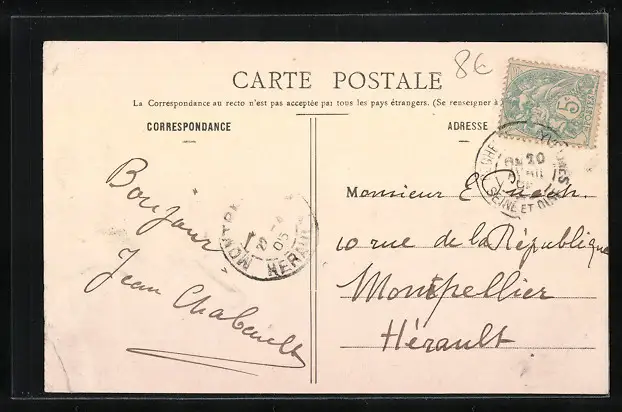 8€
CARTE POSTALE
La Correspondance au recto n'est pas acceptée par tous les pays étrangers. (Se renseigner à
CORRESPONDANCE
ADRESSE
5
20
SEINE ET OISE
Bonjour
Jean
MONTPE
05
HERAULT
Monsieur E
10 rue de la République
Montpellier
Hérault